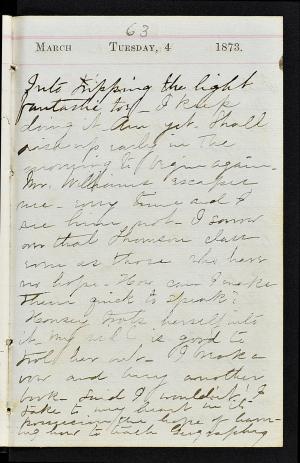 63
MARCH TUESDAY, 4 1873.
Into tripping the light
fantastic toe - I keep
doing it. Am yet. Shall
wake up early in the
morning to begin again.
Mr. Williams escapes
me - every time and I
see him not - I sorrow
over that Thomson class
even as those who have
no hope. How can I make
them quick to speak?
herself into
it is good to
her out. I make
over and bury another
book - said I wouldn't! I
take to my heart in its
possession the hope of learn-
ing how to teach Geography